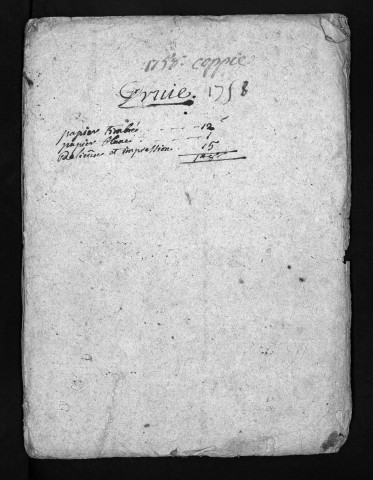 1758. coppie
Druie. 1758
papier timbré 12
papier blanc
et impression 15